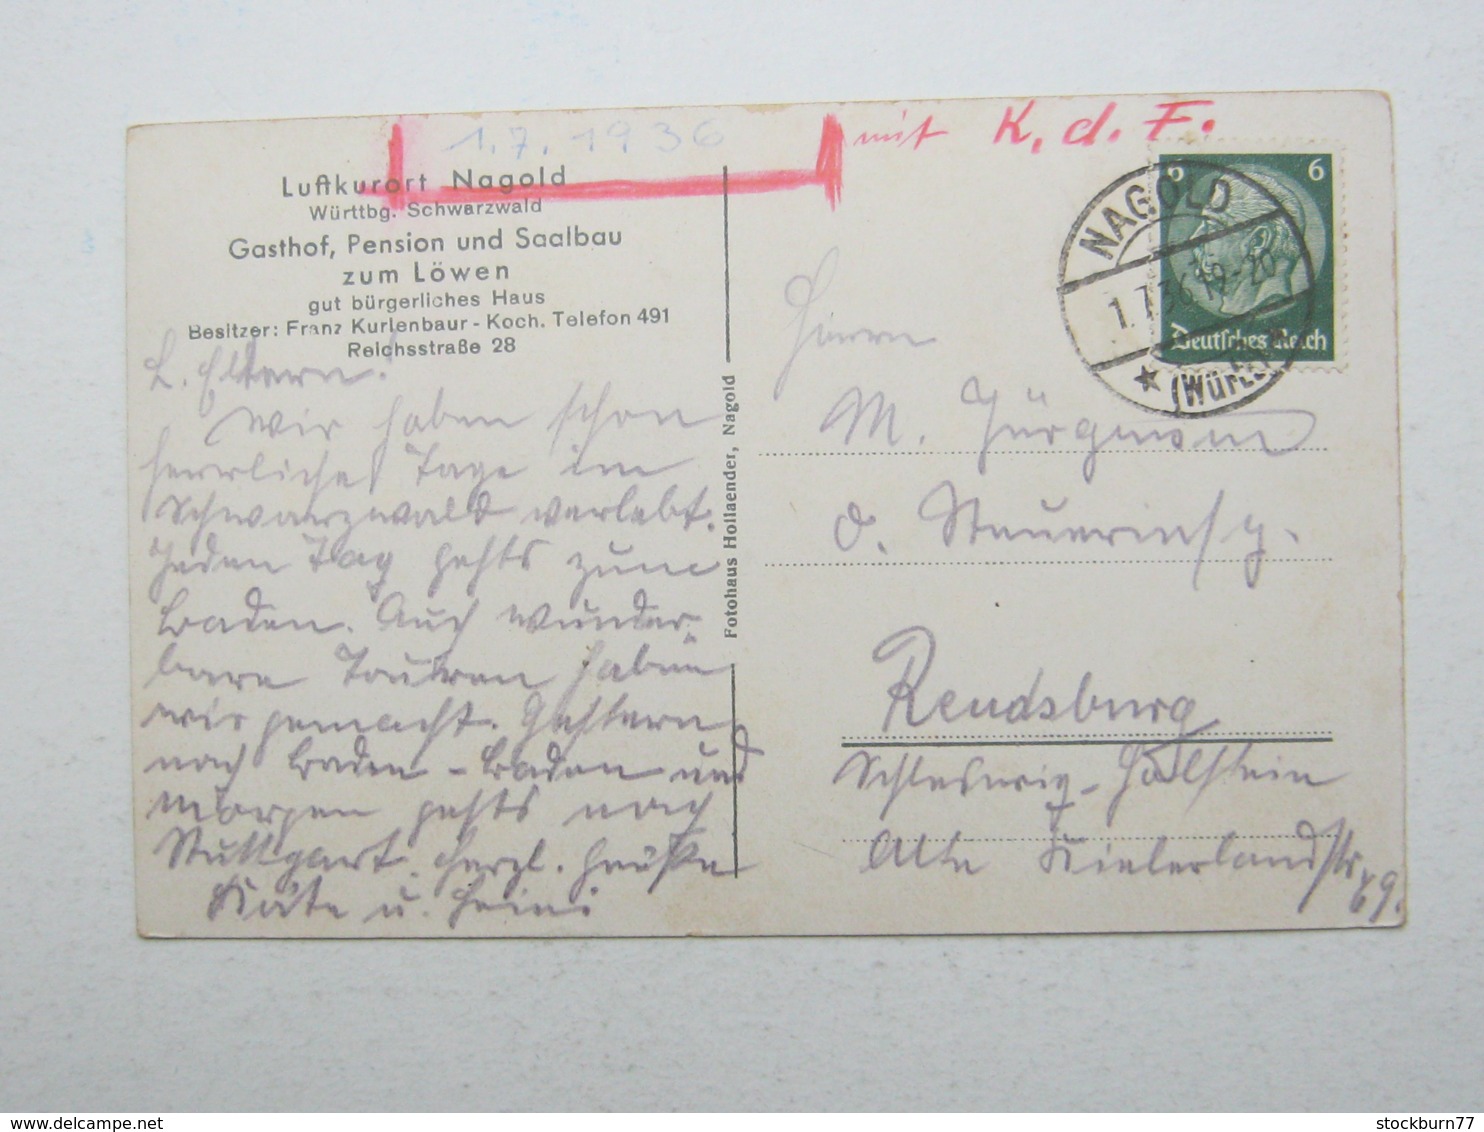 1.7.1936
mit K. d. F.
Luftkurort Nagold
Württbg. Schwarzwald
Gasthof, Pension und Saalbau
zum Löwen
gut bürgerliches Haus
Besitzer: Franz Kurlenbaur - Koch. Telefon 491
Reichsstraße 28
L. Eltern!
Wir haben schon
herrliche Tage im
Schwarzwald verlebt.
Jeden Tag gehts zum
Baden. Auch wunder-
bare Touren haben
wir gemacht. Gestern
nach Baden-Baden und
morgen gehts nach
Stuttgart. Herzl. Grüße
Käte u. Heini
Fotohaus Hollaender, Nagold
NAGOLD
1.7.36.19-20
(WÜRTT.)
6
6
Deutsches Reich
Herrn
M. Jürgensen
O. Steuerinsp.
Rendsburg
Schleswig-Holstein
Alte Kielerlandstr
69.
stockburn77